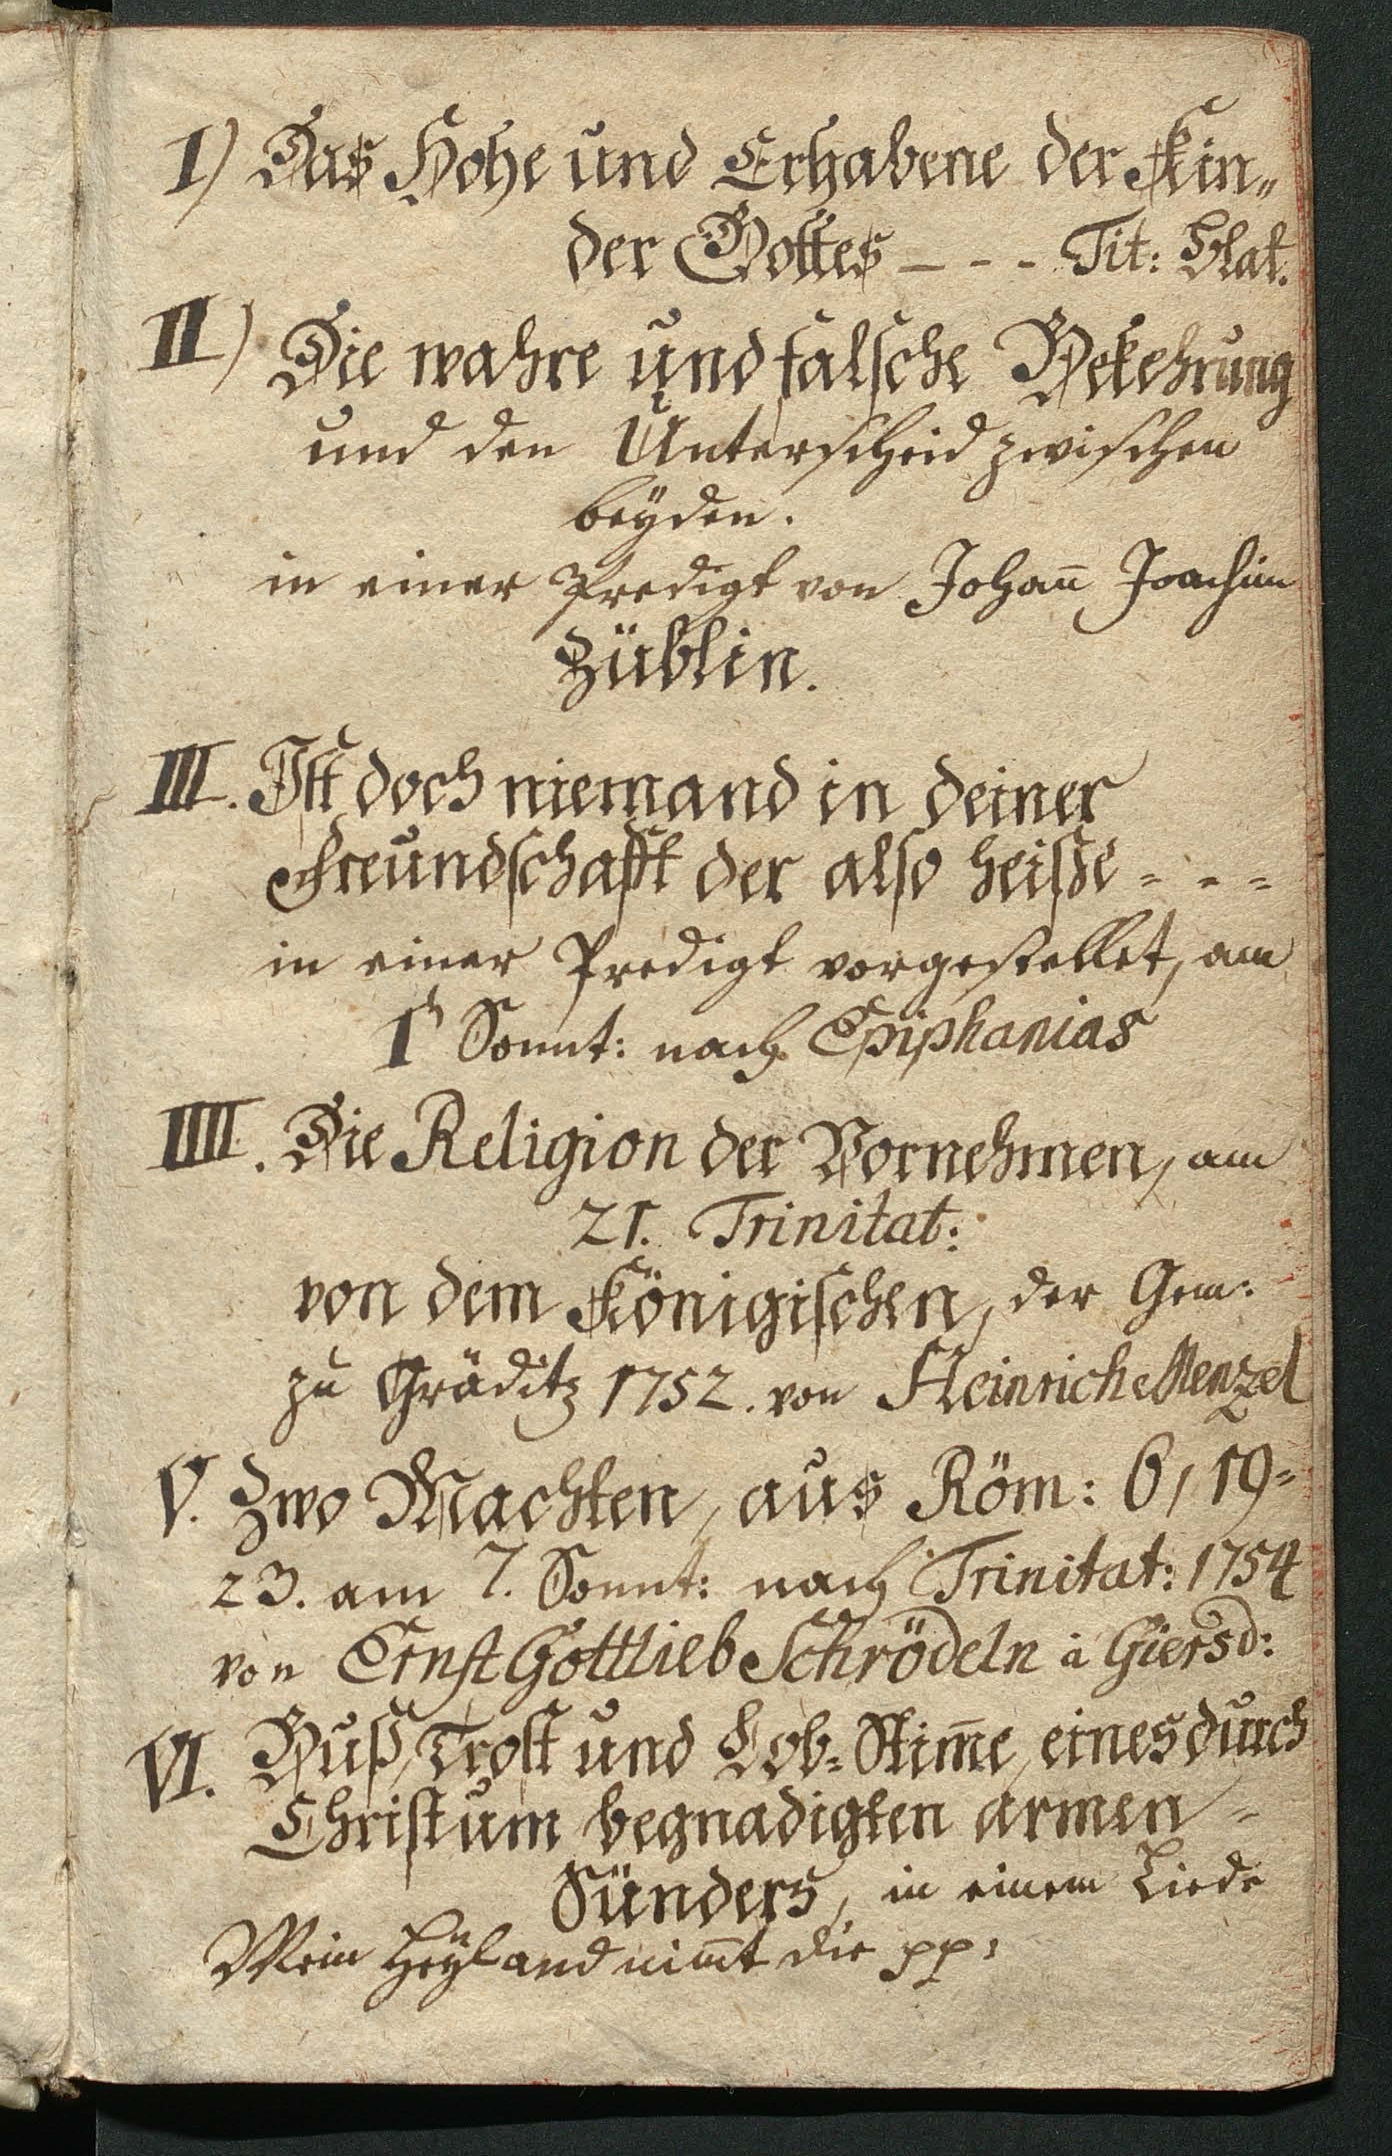 I) Das Hohe und Erhabene der Kin„
der Gottes - - - Tit: Blat.
II) Die wahre und falsche Bekehrung
und den Unterscheid zwischen
beyden.
in einer Predigt von Johañ Joachim
Züblin.
III. Ist doch niemand in deiner
Freundschafft der also heisse - - -
in einer Predigt vorgestellet, am
1 Sonnt: nach Epiphanias
IIII. Die Religion der Vornehmen, am
21. Trinitat:
von dem Königischen, der Gem:
zu Gräditz 1752. von Heinrich Menzel
V. Zwo Machten, aus Röm: 6, 19-
23. am 7. Sonnt: nach Trinitat: 1754
von Ernst Gottlieb Schrödeln à Giersd:
VI. Buß, Trost und Lob-Stim̃e, eines durch
Christum begnadigten armen
Sünders, in einem Liede
Mein Heyland nim̃t die pp: